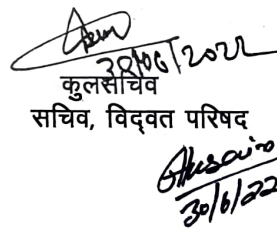 30/06/2022
कुलसचिव
सचिव, विद्वत परिषद
30/6/22